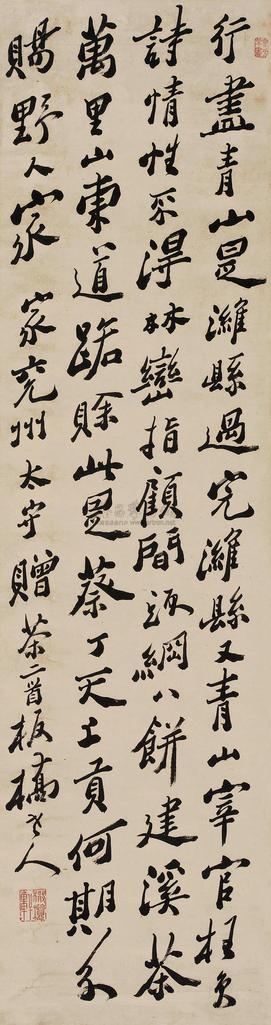 行盡青山是濰縣過完濰縣又青山宰官枉負
詩情性不得林巒指顧間頭綱八餅建溪茶
萬里山東道路賒此是蔡丁天上貢何期分
賜野人家 家兗州太守贈茶二首板橋老人